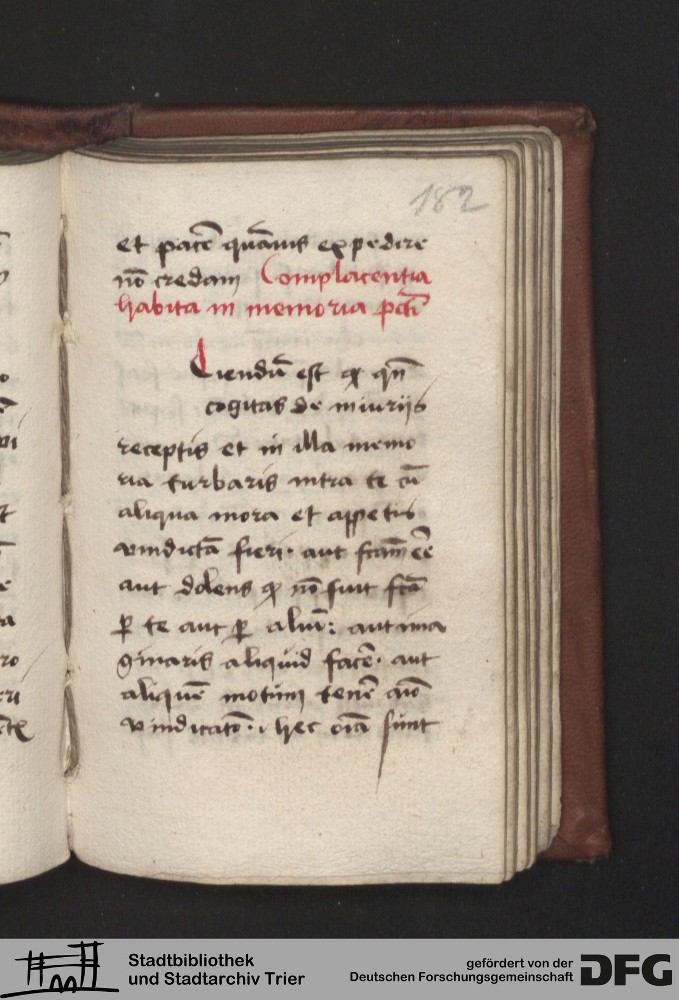 182
et pacē quāuis expedire
nō credam Complacentia
habita in memoria pcti
Sciendū est qd qn̄
cogitas de iniuriis
receptis et in illa memo
ria turbaris intra te cū
aliqua mora et appetis
vindictā fieri. aut fcām eē
aut dolens qd nō fuit fcā
ꝑ te aut ꝑ aliū: aut ima
ginaris aliquid facē. aut
aliquē motum tenē aīo
vindicatō. hec oīa sunt
Stadtbibliothek
und Stadtarchiv Trier
gefördert von der
Deutschen Forschungsgemeinschaft
DFG